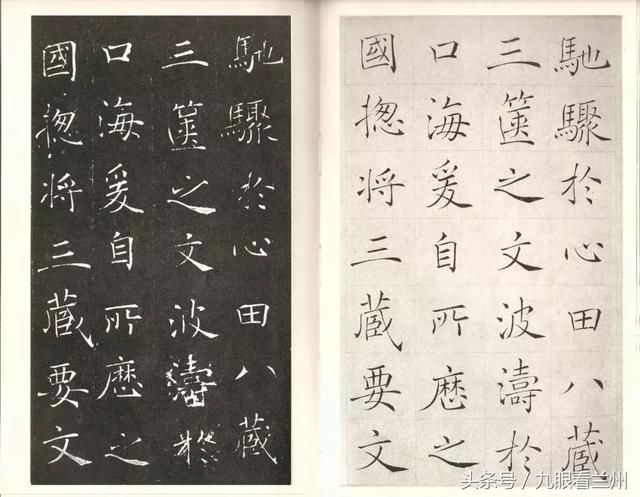 馳驟於心田八藏
三篋之文波濤於
口海爰自所歷之
國揔将三藏要文
馳驟於心田八藏
三篋之文波濤於
口海爰自所歷之
國揔将三藏要文
头条号／九眼看兰州